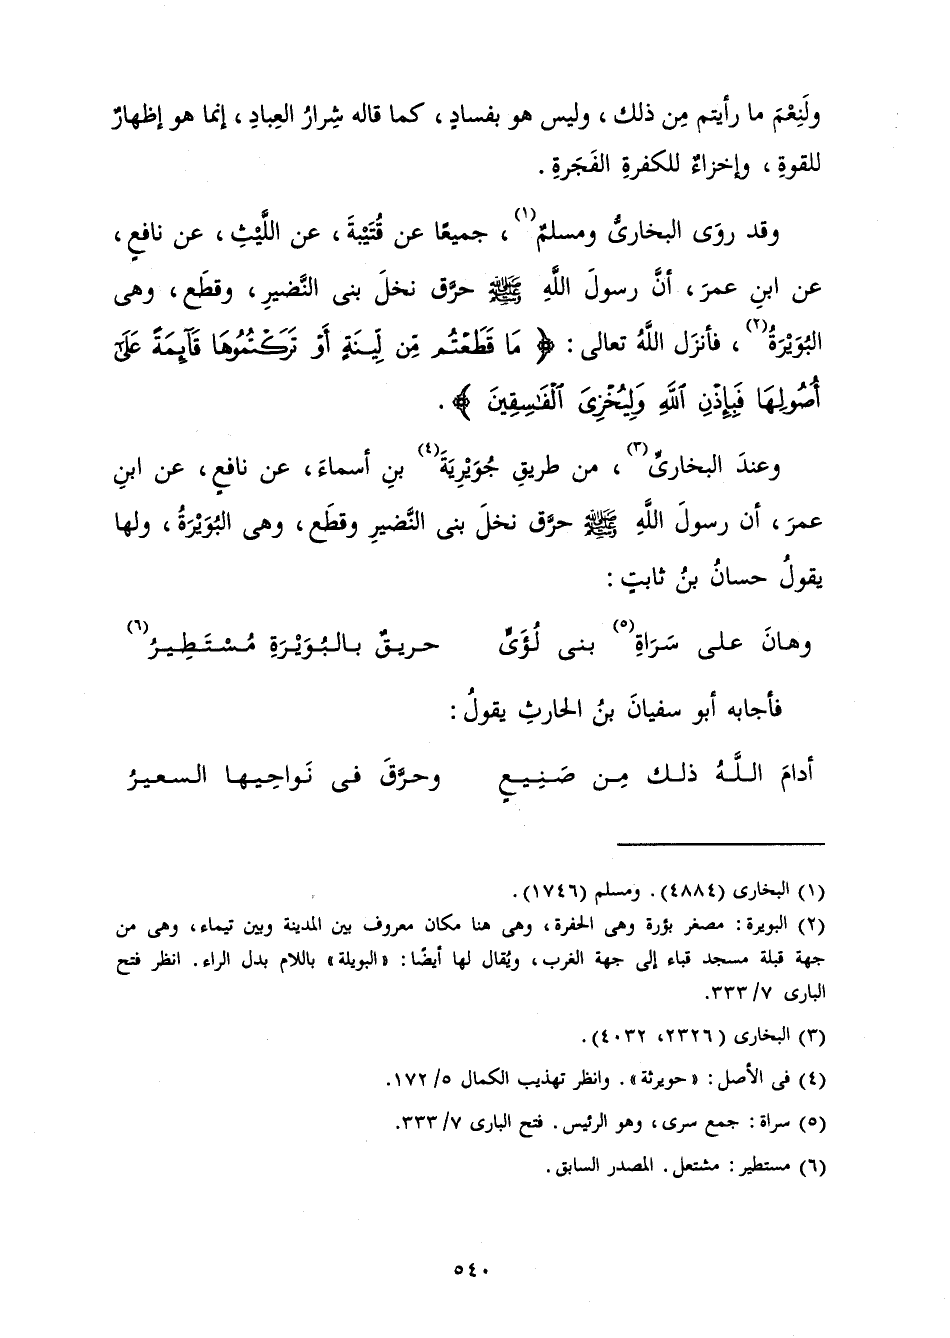 ولَنِعْمَ ما رأيتم مِن ذلك ، وليس هو بفسادٍ ، كما قاله شِرارُ العِبادِ ، إنما هو إظهارٌ
للقوةِ ، وإخزاءٌ للكفرةِ الفَجَرةِ .
وقد روَى البخارىُّ ومسلمٌ(١) ، جميعًا عن قُتَيْبةَ ، عن اللَّيْثِ ، عن نافعٍ ،
عن ابنِ عمرَ ، أنَّ رسولَ اللَّهِ ﷺ حرَّق نخلَ بنى النَّضيرِ ، وقطَع ، وهى
البُوَيْرَةُ(٢) ، فأنزَل اللَّهُ تعالى : ﴿ مَا قَطَعْتُم مِّن لِّينَةٍ أَوْ تَرَكْتُمُوهَا قَآئِمَةً عَلَىٰٓ
أُصُولِهَا فَبِإِذْنِ ٱللَّهِ وَلِيُخْزِىَ ٱلْفَـٰسِقِينَ ﴾ .
وعندَ البخارىِّ(٣) ، من طريقِ جُوَيْرِيَةَ(٤) بنِ أسماءَ ، عن نافعٍ ، عن ابنِ
عمرَ ، أن رسولَ اللَّهِ ﷺ حرَّق نخلَ بنى النَّضيرِ وقطَع ، وهى البُوَيْرَةُ ، ولها
يقولُ حسانُ بنُ ثابتٍ :
وهانَ على سَرَاةِ(٥) بنى لُؤَىٍّ حريقٌ بالبُوَيْرَةِ مُسْتَطِيرُ(٦)
فأجابه أبو سفيانَ بنُ الحارثِ يقولُ :
أدامَ اللَّهُ ذلك مِن صَنِيعٍ وحرَّقَ فى نَواحِيها السعيرُ
(١) البخارى (٤٨٨٤) . ومسلم (١٧٤٦) .
(٢) البويرة : مصغر بؤرة وهى الحفرة ، وهى هنا مكان معروف بين المدينة وبين تيماء ، وهى من
جهة قبلة مسجد قباء إلى جهة الغرب ، ويُقال لها أيضًا : «البويلة» باللام بدل الراء . انظر فتح
البارى ٧/ ٣٣٣.
(٣) البخارى (٢٣٢٦، ٤٠٣٢) .
(٤) فى الأصل : «حويرثة» . وانظر تهذيب الكمال ٥/ ١٧٢.
(٥) سراة : جمع سرى ، وهو الرئيس . فتح البارى ٧/ ٣٣٣.
(٦) مستطير : مشتعل . المصدر السابق .
٥٤٠